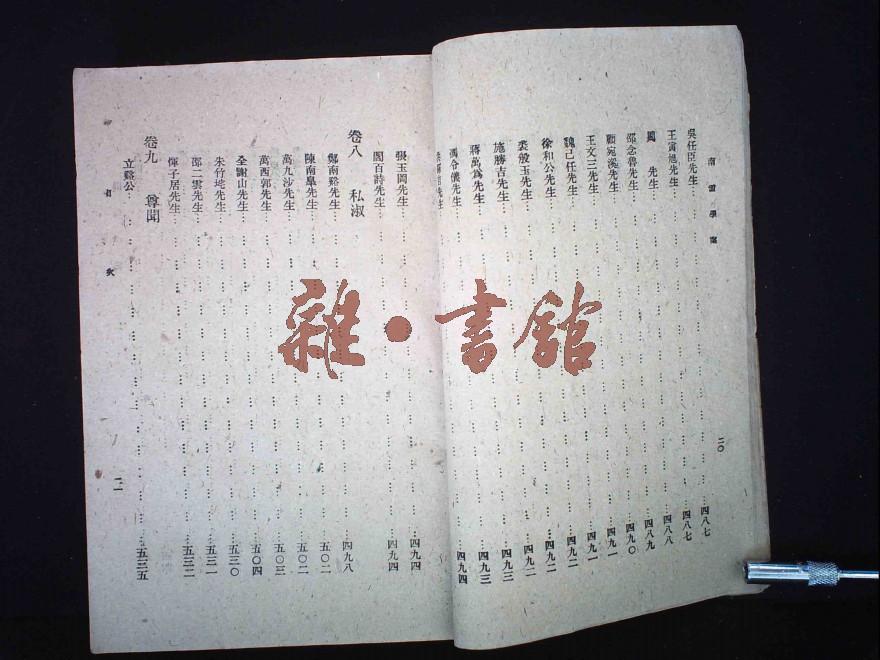 南雷學案
二〇
吳任臣先生……四八七
王寅旭先生……四八七
先生……四八八
邵念魯先生……四八九
顧宛溪先生……四九〇
王文三先生……四九一
魏已任先生……四九一
徐和公先生……四九二
裘殷玉先生……四九二
施勝吉先生……四九二
蔣萬為先生……四九三
馮令儀先生……四九三
先生……四九四
張玉岡先生……四九四
閻百詩先生……四九四
卷八 私淑
鄭南谿先生……四九八
陳南皐先生……五〇二
萬九沙先生……五〇二
萬西郭先生……五〇三
全謝山先生……五〇四
朱竹垞先生……五三〇
邵二雲先生……五三一
惲子居先生……五三二
卷九 尊聞
立谿公……五三五
目次
二一
雜·書館